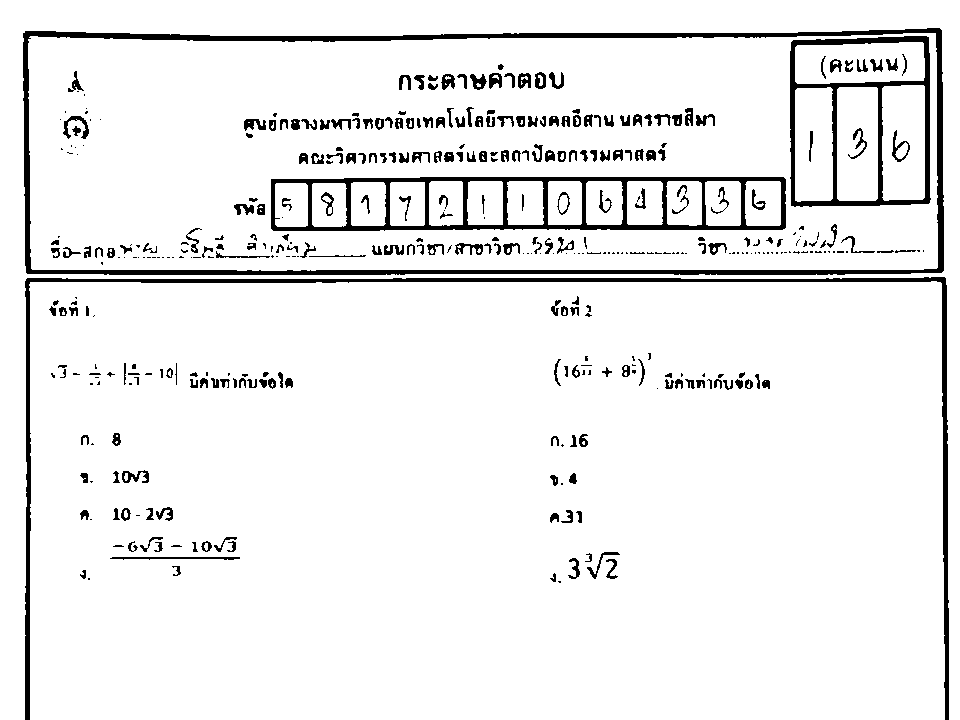 กระดาษคำตอบ
(คะแนน)
ศูนย์กลางมหาวิทยาลัยเทคโนโลยีราชมงคลอีสาน นครราชสีมา
1 3 6
คณะวิศวกรรมศาสตร์และสถาปัตยกรรมศาสตร์
รหัส 5 8 1 7 2 1 1 0 6 4 3 3 6
ชื่อ-สกุล แผนกวิชา/สาขาวิชา วิชา
ข้อที่ 1.
มีค่าเท่ากับข้อใด
ก. 8
ข. 10√3
ค. 10 - 2√3
ง. (-6√3 - 10√3)/3
ข้อที่ 2
มีค่าเท่ากับข้อใด
ก. 16
ข. 4
ค.31
ง. 3∛2